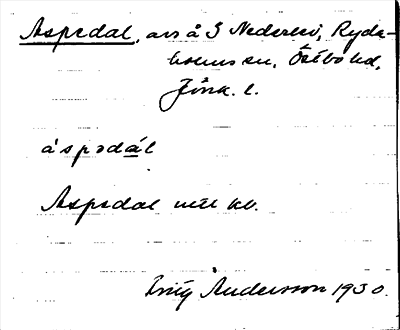 Aspedal, avs å S Nederled, Ryda-
holms sn, Östbo hd,
Jönk. l.
áspədál
Aspedal
Andersson 1930.